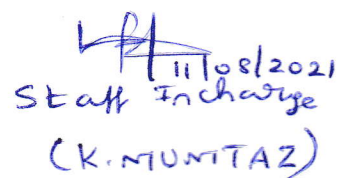 11/08/2021
Staff Incharge
(K. MUMTAZ)